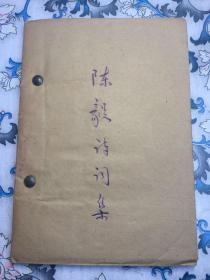 陈毅诗词集